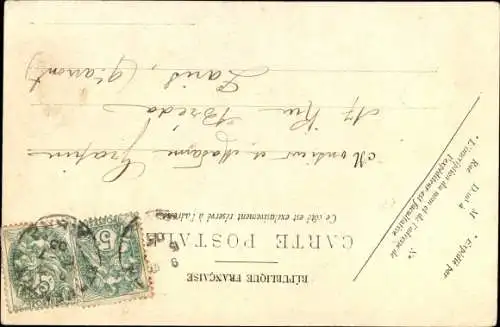 RÉPUBLIQUE FRANÇAISE
CARTE POSTALE
Ce côté est exclusivement réservé à l'adresse
Monsieur et Madame
17 Rue Bréda
Paris,
* Expédié par
M
Dmt à
Rue
N°
* L'inscription du nom et de l'adresse de
l'expéditeur est facultative
5
5